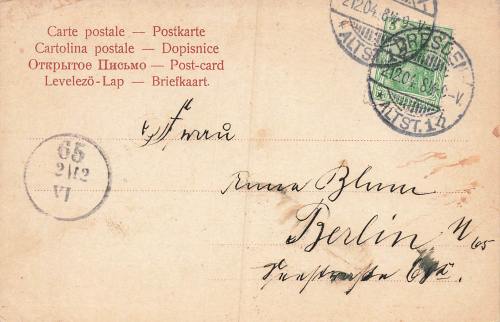 Carte postale — Postkarte
Cartolina postale — Dopisnice
Открытое Письмо — Post-card
Levelező-Lap — Briefkaart.
DRESDEN
ALTST. 14
2.12.04. 8½-9.V.
DRESDEN
2.12.04. 8½-9.V.
* ALTST. 14
65
2/12
VI
Frau
Anna Blum
Berlin N 65
Seestraße